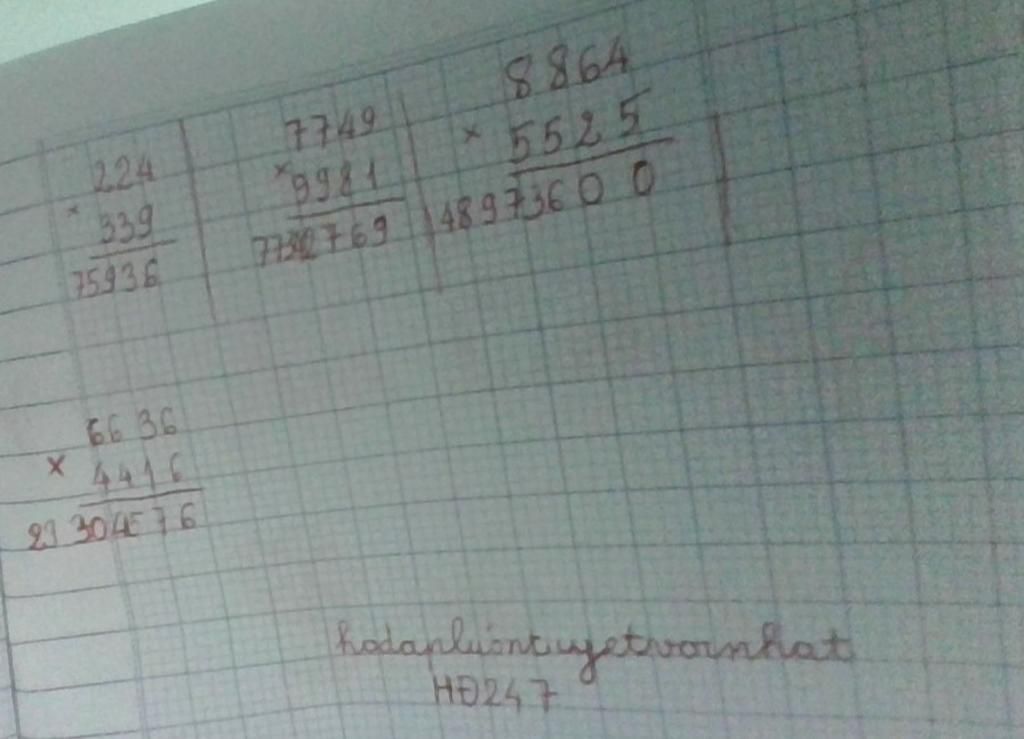 224
× 339
75936
7749
× 9981
77342769
8864
× 5525
48973600
6636
× 4416
29304576
hodapluôntuyetvoinhat
HĐ247